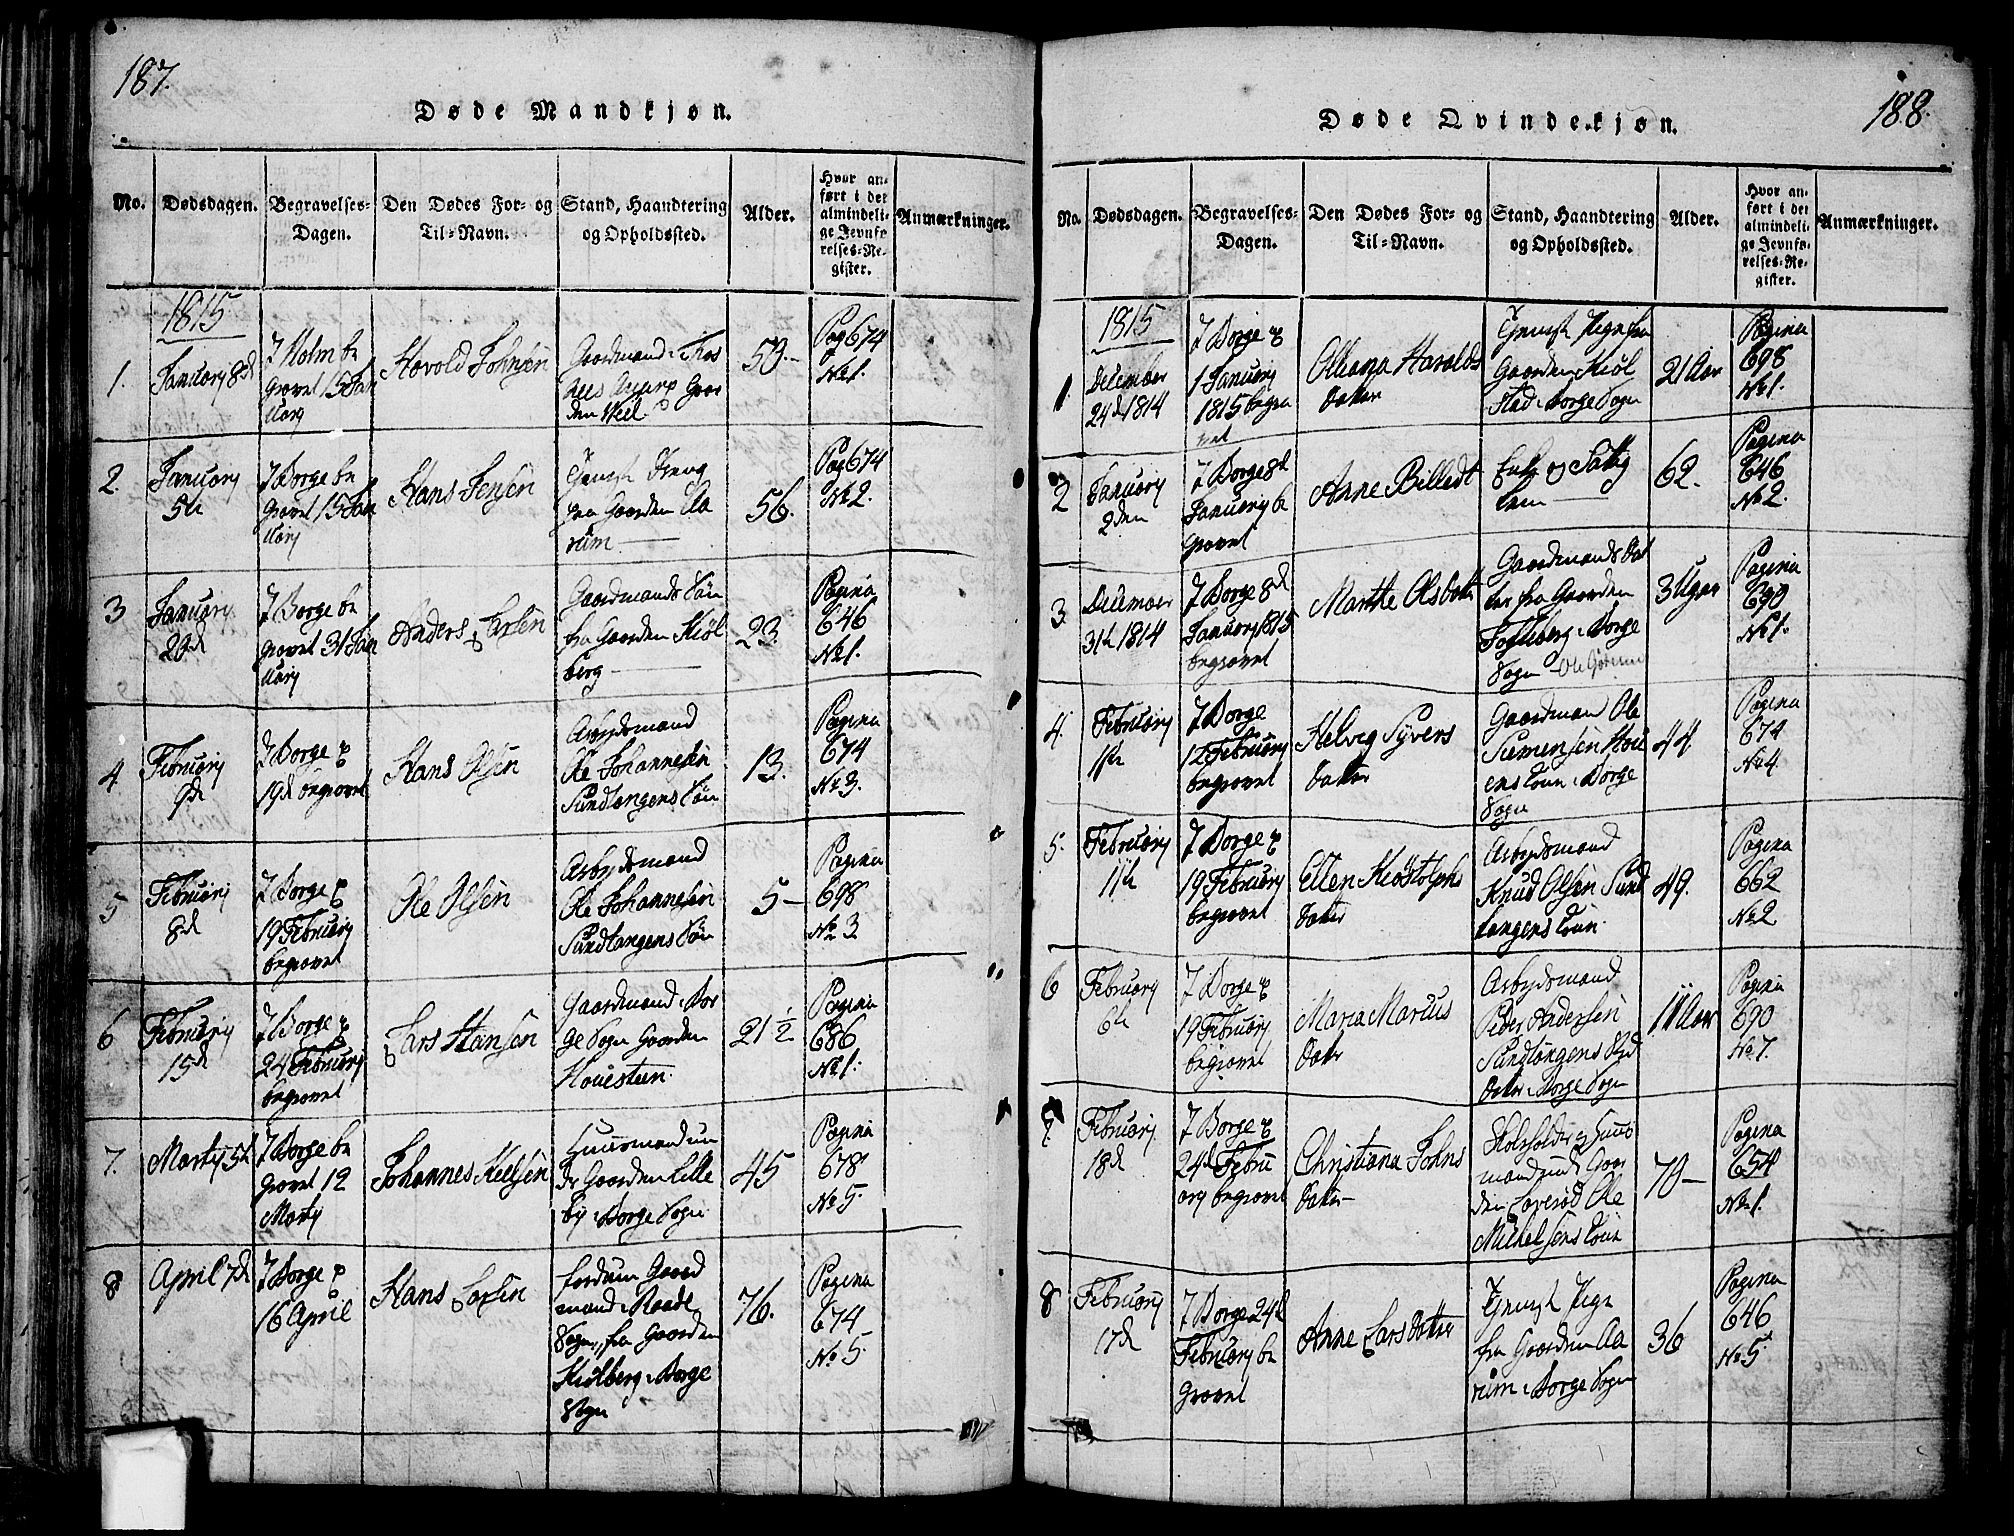 187.
Døde Mandkjøn.
No.
Dødsdagen.
Begravelses-
Dagen.
Den Dødes For- og
Til-Navn.
Stand, Haandtering
og Opholdssted.
Alder.
Hvor an-
ført i det
almindeli-
ge Jevnfø-
relses-Re-
gister.
Anmærkninger.
1815
1.
January 8d
I Holm be
gravet 15 Jan
uary
Havold Johnsen
Gaardmand i
den
53.-
Pag 674
No 1.
2.
January
5te
I Borge be
gravet 15 Jan
uary
Hans Jensen
Tjeneste Dreng
fra Gaarden Aa
rum
56.
Pag 674
No 2.
3
January
29d
I Borge be
gravet 31 Jan
uary
Anders Larsen
Gaardmands Søn
fra Gaarden Kiøl
berg
23.
Pagina
646
No 1.
4
February
9de
I Borge
19d begravet
Hans Olsen
Arbydsmand
Ole Johannesen
Sandtangens Søn
13.
Pagina
674
No 3.
5
February
8d
I Borge
19 February
begravet
Ole Olsen
Arbydsmand
Ole Johannesen
Sandtangens Søn
5-
Pagina
698
No 3
6
February
15d
I Borge
24 February
begravet
Lars Hansen
Gaardmand i Bor
ge Sogn Gaarden
Houesteen.
21 1/2
Pagina
686
No 1.
7.
Marty 5te
I Borge be
gravet 12
Marty
Johannes Kelsen
Huusmand un
der Gaarden Lille
by i Borge Sogn
45
Pagina
678
No 5.
8
April 7de
I Borge
16 April
Hans Larsen
fordum Gaard
mand i Raade
Sogn, fra Gaarden
Kiølberg i Borge
Sogn
76.
Pagina
674
No 5.
188.
Døde Qvindekjøn.
No.
Dødsdagen.
Begravelses-
Dagen.
Den Dødes For- og
Til-Navn.
Stand, Haandtering
og Opholdssted.
Alder.
Hvor an-
ført i det
almindeli-
ge Jevnfø-
relses-Re-
gister.
Anmærkninger.
1815
1.
December
24d 1814
I Borge
1 January
1815 begra
vet
Oleana Harolds
Datter
Tjeneste Pige fra
Gaarden Kiøl
stad i Borge Sogn
21 Aar
Pagina
698
No 1.
2
January
2den
I Borge 8de
January be
gravet
Anne Billedt
Enke og Fattig
lem
62.
Pagina
646
No 2.
3.
December
31te 1814
I Borge 8de
January 1815
begravet
Marthe Olsdatter
Gaardmands Dat
ter fra Gaarden
i Borge
Sogn
3 Uger
Pagina
690
No 1.
4.
February
1ste
I Borge
12 February
begravet
Helvig Syvers
Datter
Gaardmand Ole
Simensen Hou
ens Kone i Borge
Sogn
44
Pagina
674
No 4.
5.
February
11te
I Borge
19 February
begravet
Ellen Kiøstolphs
Datter
Arbydsmand
Knud Olsen Sand
tangens Kone
49.
Pagina
662
No 2.
6
February
6te
I Borge
19 February
begravet
Maria Marcus
Datter
Arbydsmand
Peder Andersen
Sandtangens
Datter i Borge Sogn
11 Aar
Pagina
690
No 7.
7.
February
18d
I Borge
24d Febru
ary begravet
Christiana Johns
Datter
Skoleholder og Huus
mand under Gaar
den Ole
Michelsens Kone
70-
Pagina
654
No 1.
8
February
17d
I Borge 24d
February be
gravet
Anne Larsdatter
Tjeneste Pige
fra Gaarden Aa
rum i Borge Sogn
36
Pagina
646
No 5.